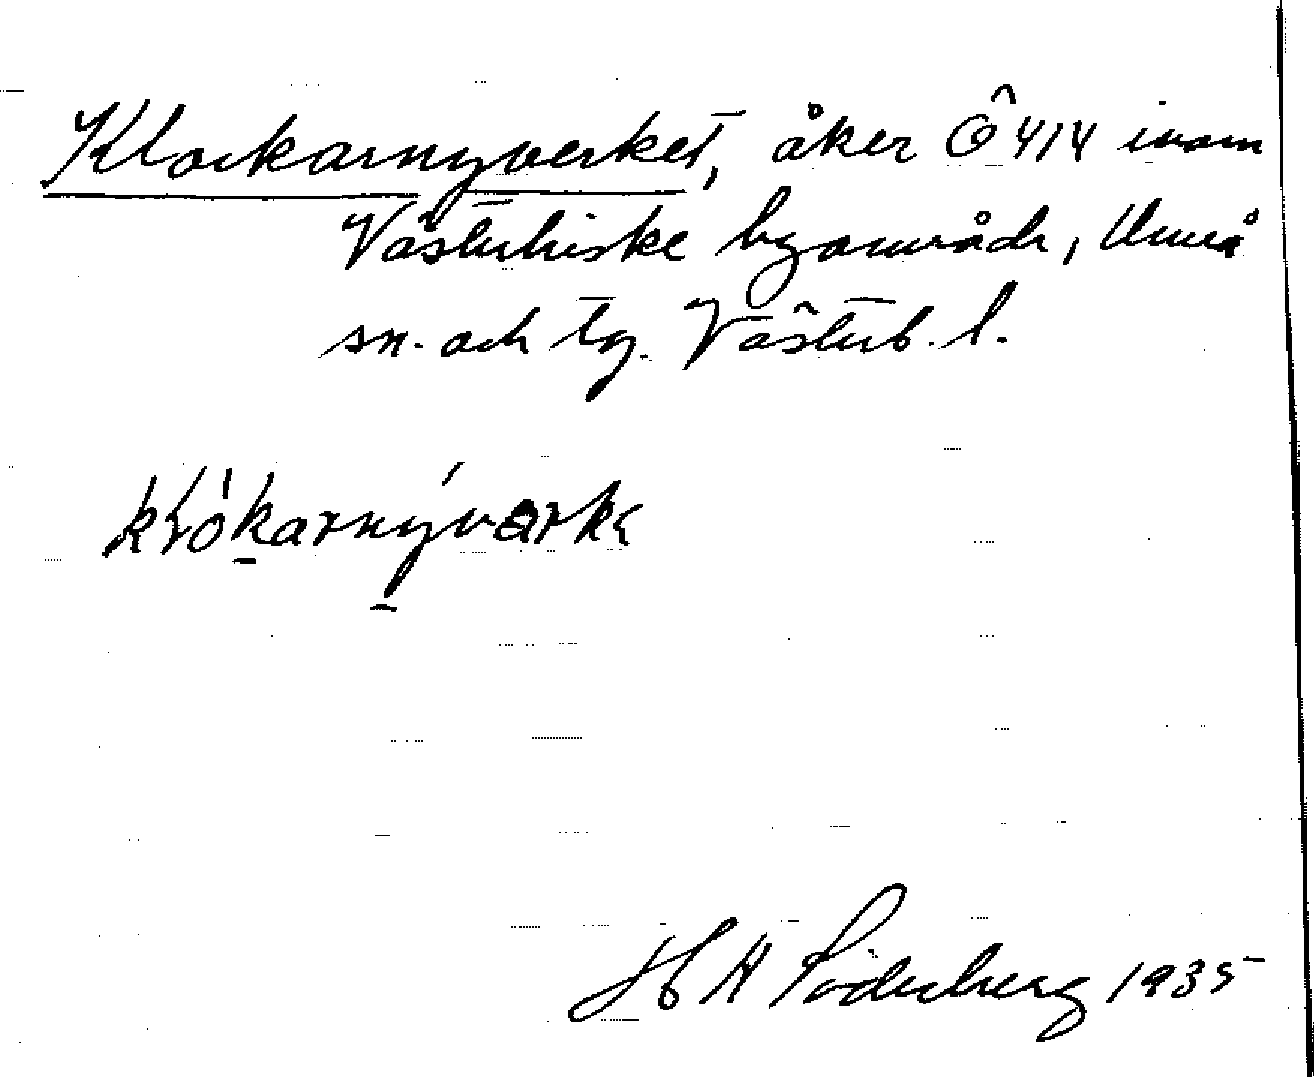 Klockarnyverket, åker Ö 414 inom
Västerhiske byområde, Umeå
sn. och tg. Västerb. l.
klòkarnývarke
H Söderberg 1935